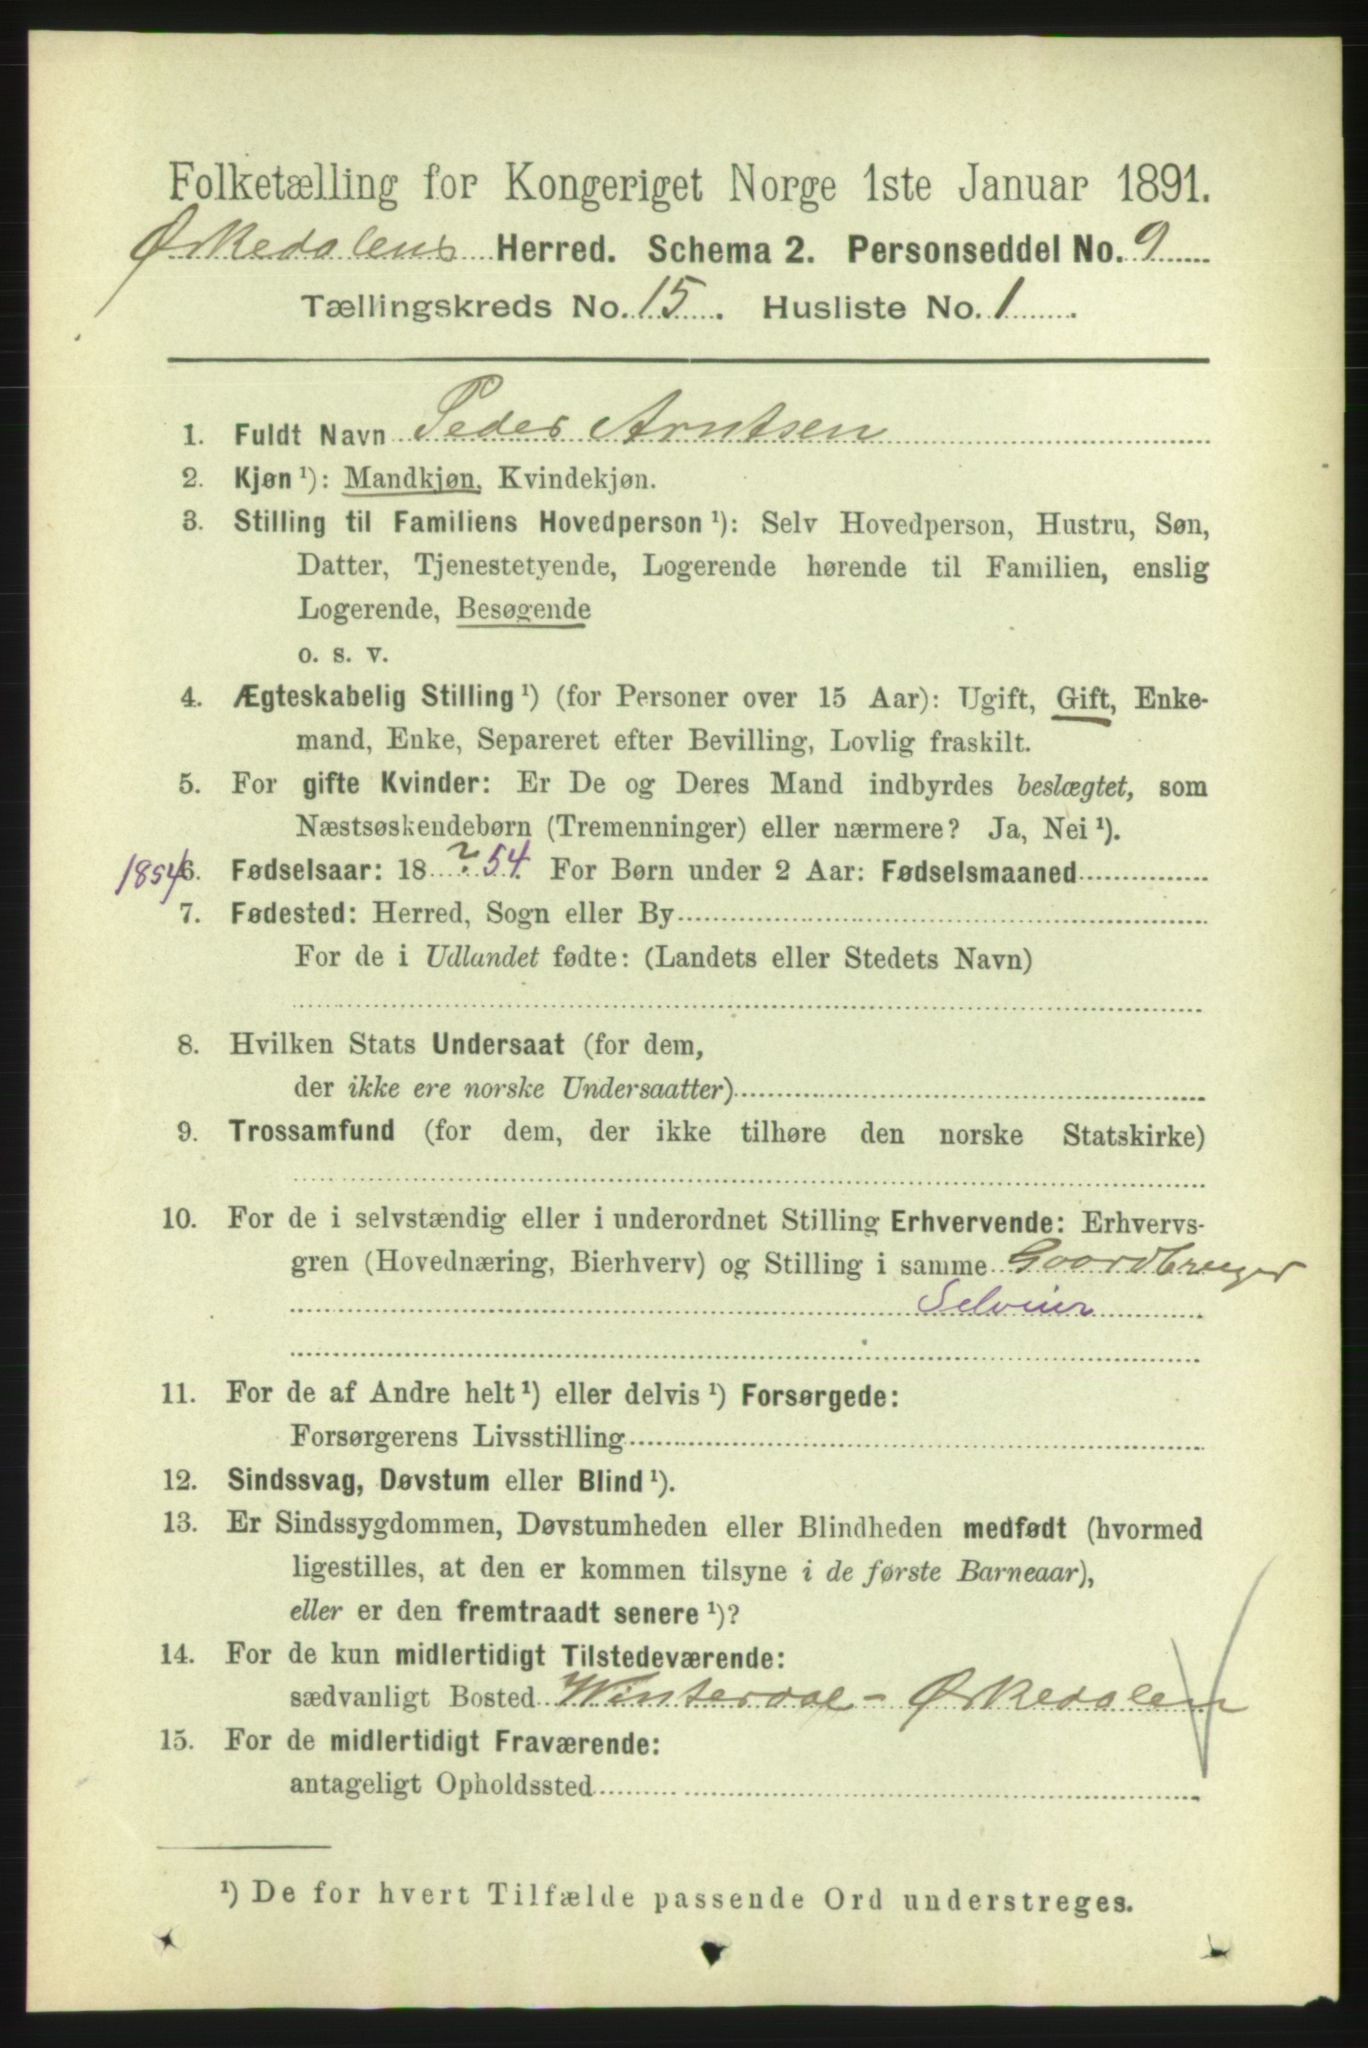 Folketælling for Kongeriget Norge 1ste Januar 1891.
Ørkedalens Herred. Schema 2. Personseddel No. 9
Tællingskreds No. 15. Husliste No. 1.
1. Fuldt Navn Peder Arntsen
2. Kjøn ¹): Mandkjøn, Kvindekjøn.
3. Stilling til Familiens Hovedperson ¹): Selv Hovedperson, Hustru, Søn,
Datter, Tjenestetyende, Logerende hørende til Familien, enslig
Logerende, Besøgende
o. s. v.
4. Ægteskabelig Stilling ¹) (for Personer over 15 Aar): Ugift, Gift, Enke-
mand, Enke, Separeret efter Bevilling, Lovlig fraskilt.
5. For gifte Kvinder: Er De og Deres Mand indbyrdes beslægtet, som
Næstsøskendebørn (Tremenninger) eller nærmere? Ja, Nei ¹).
1854 6. Fødselsaar: 18 ? 54. For Børn under 2 Aar: Fødselsmaaned
7. Fødested: Herred, Sogn eller By
For de i Udlandet fødte: (Landets eller Stedets Navn)
8. Hvilken Stats Undersaat (for dem,
der ikke ere norske Undersaatter)
9. Trossamfund (for dem, der ikke tilhøre den norske Statskirke)
10. For de i selvstændig eller i underordnet Stilling Erhvervende: Erhvervs-
gren (Hovednæring, Bierhverv) og Stilling i samme Gaardbruger
Selveier
11. For de af Andre helt ¹) eller delvis ¹) Forsørgede:
Forsørgerens Livsstilling
12. Sindssvag, Døvstum eller Blind ¹).
13. Er Sindssygdommen, Døvstumheden eller Blindheden medfødt (hvormed
ligestilles, at den er kommen tilsyne i de første Barneaar),
eller er den fremtraadt senere ¹)?
14. For de kun midlertidigt Tilstedeværende:
sædvanligt Bosted Winterdal - Ørkedalen
15. For de midlertidigt Fraværende:
antageligt Opholdssted
¹) De for hvert Tilfælde passende Ord understreges.